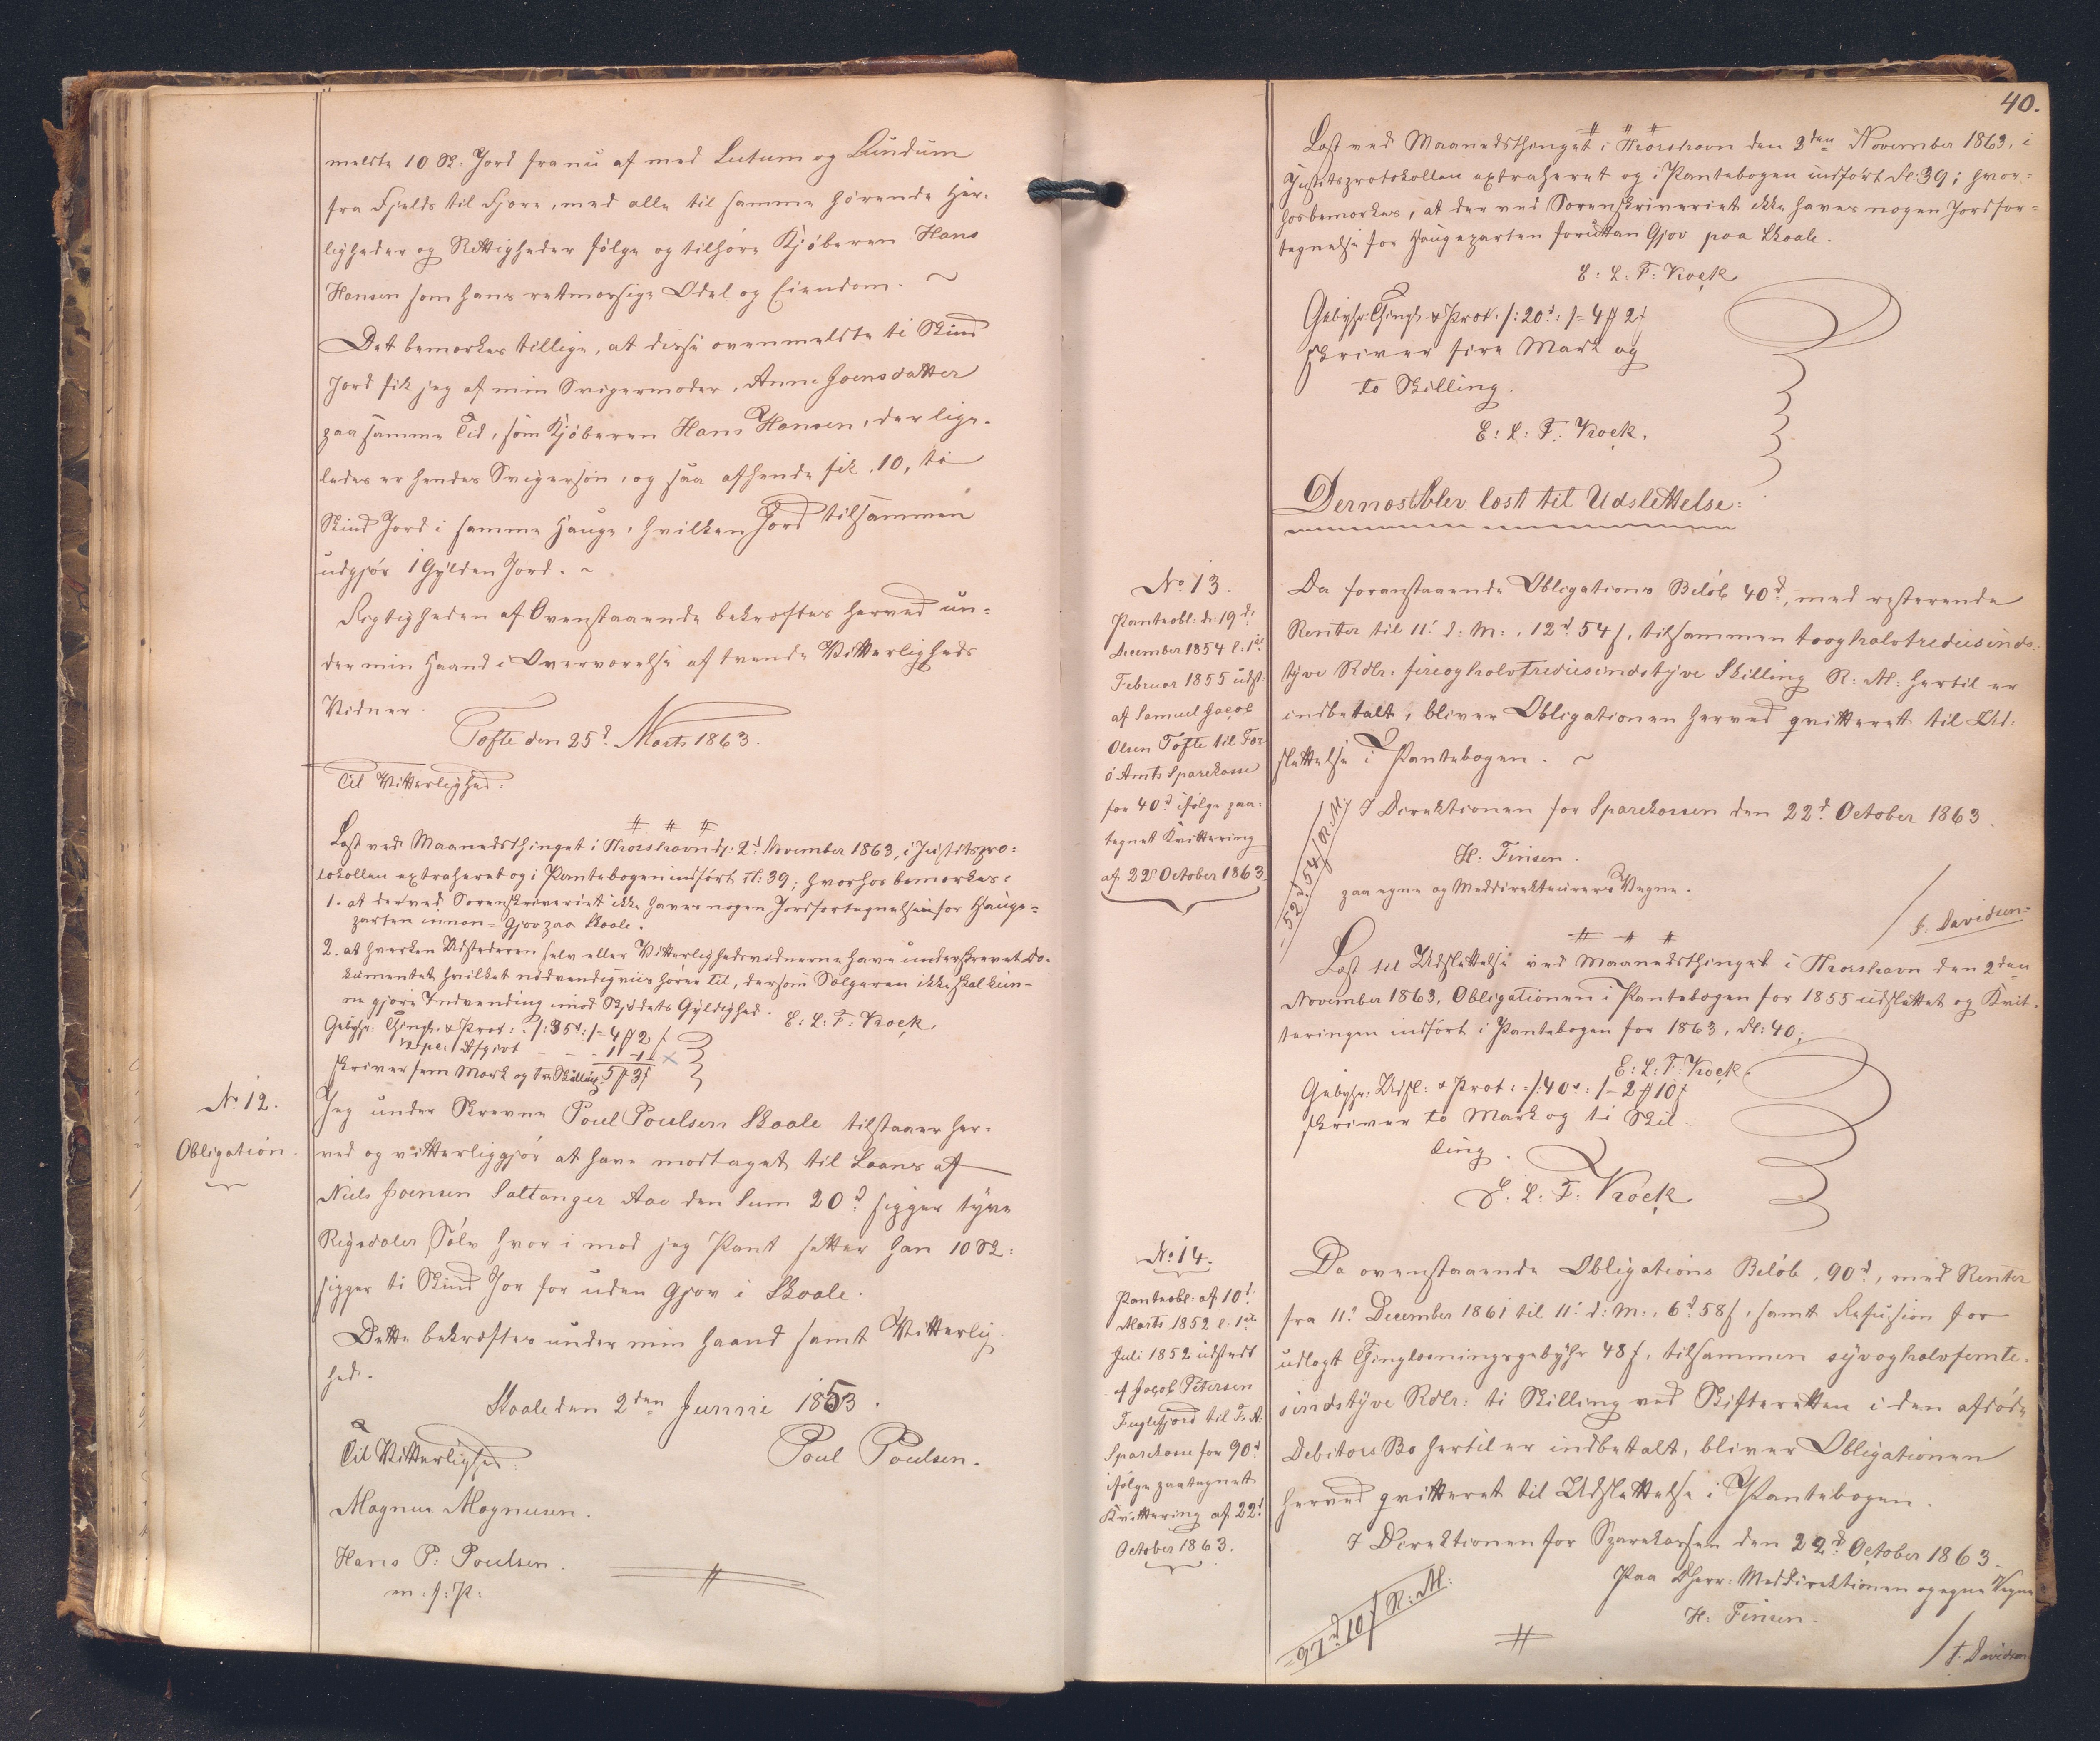 meldte 10 Sk: Jord fra nu af med Lutum og Lundum
fra Fjelds til Fjære, med alle til samme hørende Her-
ligheder og Rettigheder følge og tilhøre Kjøberen Hans
Hansen som hans retmæssige Odel og Eiendom. ~
Det bemærkes tillige, at disse ovenmeldte ti Skind
Jord fik jeg af min Svigermoder, Anne Joensdatter
paa samme Tid, som Kjøberen Hans Hansen, der lige-
ledes er hendes Svigersøn, og saa afhende fik 10, ti
Skind Jord i samme Hauge, hvilken Jord tilsammen
udgjør 1 Gylden Jord. ~
Rigtigheden af Ovenstaaende bekræftes herved un-
der min Haand i Overværelse af tvende Vitterligheds
Vidner.
Tofte den 25d Marts 1863.
Til Vitterlighed:
# # #
Læst ved Maanedsthinget i Thorshavn d: 2d November 1863, i Justitspro-
tokollen extraheret og i Pantebogen indført Fl: 39; hvorhos bemærkes:
1. at der ved Sorenskriveriet ikke haves nogen Jordfortegnelse for Hauge-
parten innan-Gjov paa Skaale.
2. at hverken Udstederen selv eller Vitterlighedsvidnerne have underskrevet Do-
kumentet hvilket nødvendigviis hører til, dersom Sælgeren ikke skal kun-
ne gjøre Indvending imod Skjødets Gyldighed.
E: L: F: Krock.
Gebyhr: Thingl. & Prot: /:35d:/ = 4 # 2 f
½ pC. Afgivt - - - 1 - 1 -
skriver fem Mark og tre Skilling. 5 # 3 f
No 12.
Obligation.
Jeg under Skrevne Poul Poulsen Skaale tilstaaer her-
ved og vitterliggjør at have modtaget til Laans af
Niels Joensen Saltanger Aae den Sum 20d siger tyve
Rigsdaler Sølv hvor i mod jeg Pant setter Han 10 Sk:
siger ti Skind Jor for uden Gjov i Skaale.
Dette bekræftes under min Haand samt Vitterlig
hed.
Skaale den 2den Junnie 1853.
Til Vitterlighed:
Poul Poulsen.
Magnus Magnusen.
Hans P: Poulsen.
m. f: P:
#
40.
# # #
Læst ved Maanedsthinget i Thorshavn den 2den November 1863, i
Justitsprotokollen extraheret og i Pantebogen indført Fl: 39; hvor-
hos bemærkes, at der ved Sorenskriveriet ikke haves nogen Jordfor-
tegnelse for Haugeparten foruttan Gjov paa Skaale.
E: L: F: Krock
Gebyhr: Thingl: & Prot: /:20d:/ = 4 # 2 f
skriver fire Mark og
to Skilling.
E: L: F: Krock.
Dernæst blev læst til Udslettelse:
No 13.
Panteobl: d: 19d
December 1854 l: 1ste
Februar 1855 udst:
af Samuel Jacob
Olsen Tofte til Fær
ø Amts Sparekasse
for 40d ifølge paa-
tegnet Kvittering
af 22d October 1863.
Da foranstaaende Obligations Beløb 40d, med resterende
Renter til 11' d: M:, 12d 54 f, tilsammen tooghalvtrediesinds-
tyve Rdlr: fireoghalvtrediesindstyve Skilling R: M: hertil er
indbetalt, bliver Obligationen herved qvitteret til Ud-
slettelse i Pantebogen. ~
= 52d 54 f R: M:
I Direktionen for Sparekassen den 22d October 1863.
H: Finsen.
paa egne og Meddirekteurers Vegne.
/ J. Davidsen.
# # #
Læst til Udslettelse ved Maanedsthinget i Thorshavn den 2den
November 1863, Obligationen i Pantebogen for 1855 udslettet og Kvit-
teringen indført i Pantebogen for 1863, Fl: 40;
E: L: F: Krock
Gebyhr: Udsl: & Prot: = /:40d:/ = 2 # 10 f
skriver to Mark og ti Skil-
ling.
E: L: F: Krock
No 14.
Panteobl: af 10d
Marts 1852 l: 1ste
Juli 1852 udstedt
af Jacob Petersen
Fuglefjord til F: A.
Sparekasse for 90d
ifølge paategnet
Kvittering af 22d
October 1863.
Da ovenstaaende Obligations Beløb, 90d, med Renter
fra 11' December 1861 til 11' d: M:, 6d 58 f, samt Refusion for
udlagt Thinglæsningsgebyhr 48 f, tilsammen syvoghalvfemte-
sindstyve Rdlr: ti Skilling ved Skifteretten i den afdøde
Debitors Bo hertil er indbetalt, bliver Obligationen
herved qvitteret til Udslettelse i Pantebogen.
I Direktionen for Sparekassen den 22d October 1863.
Paa Meddirektionen og egne Vegne
= 97d 10 f R: M:
H: Finsen.
#
/ J. Davidsen